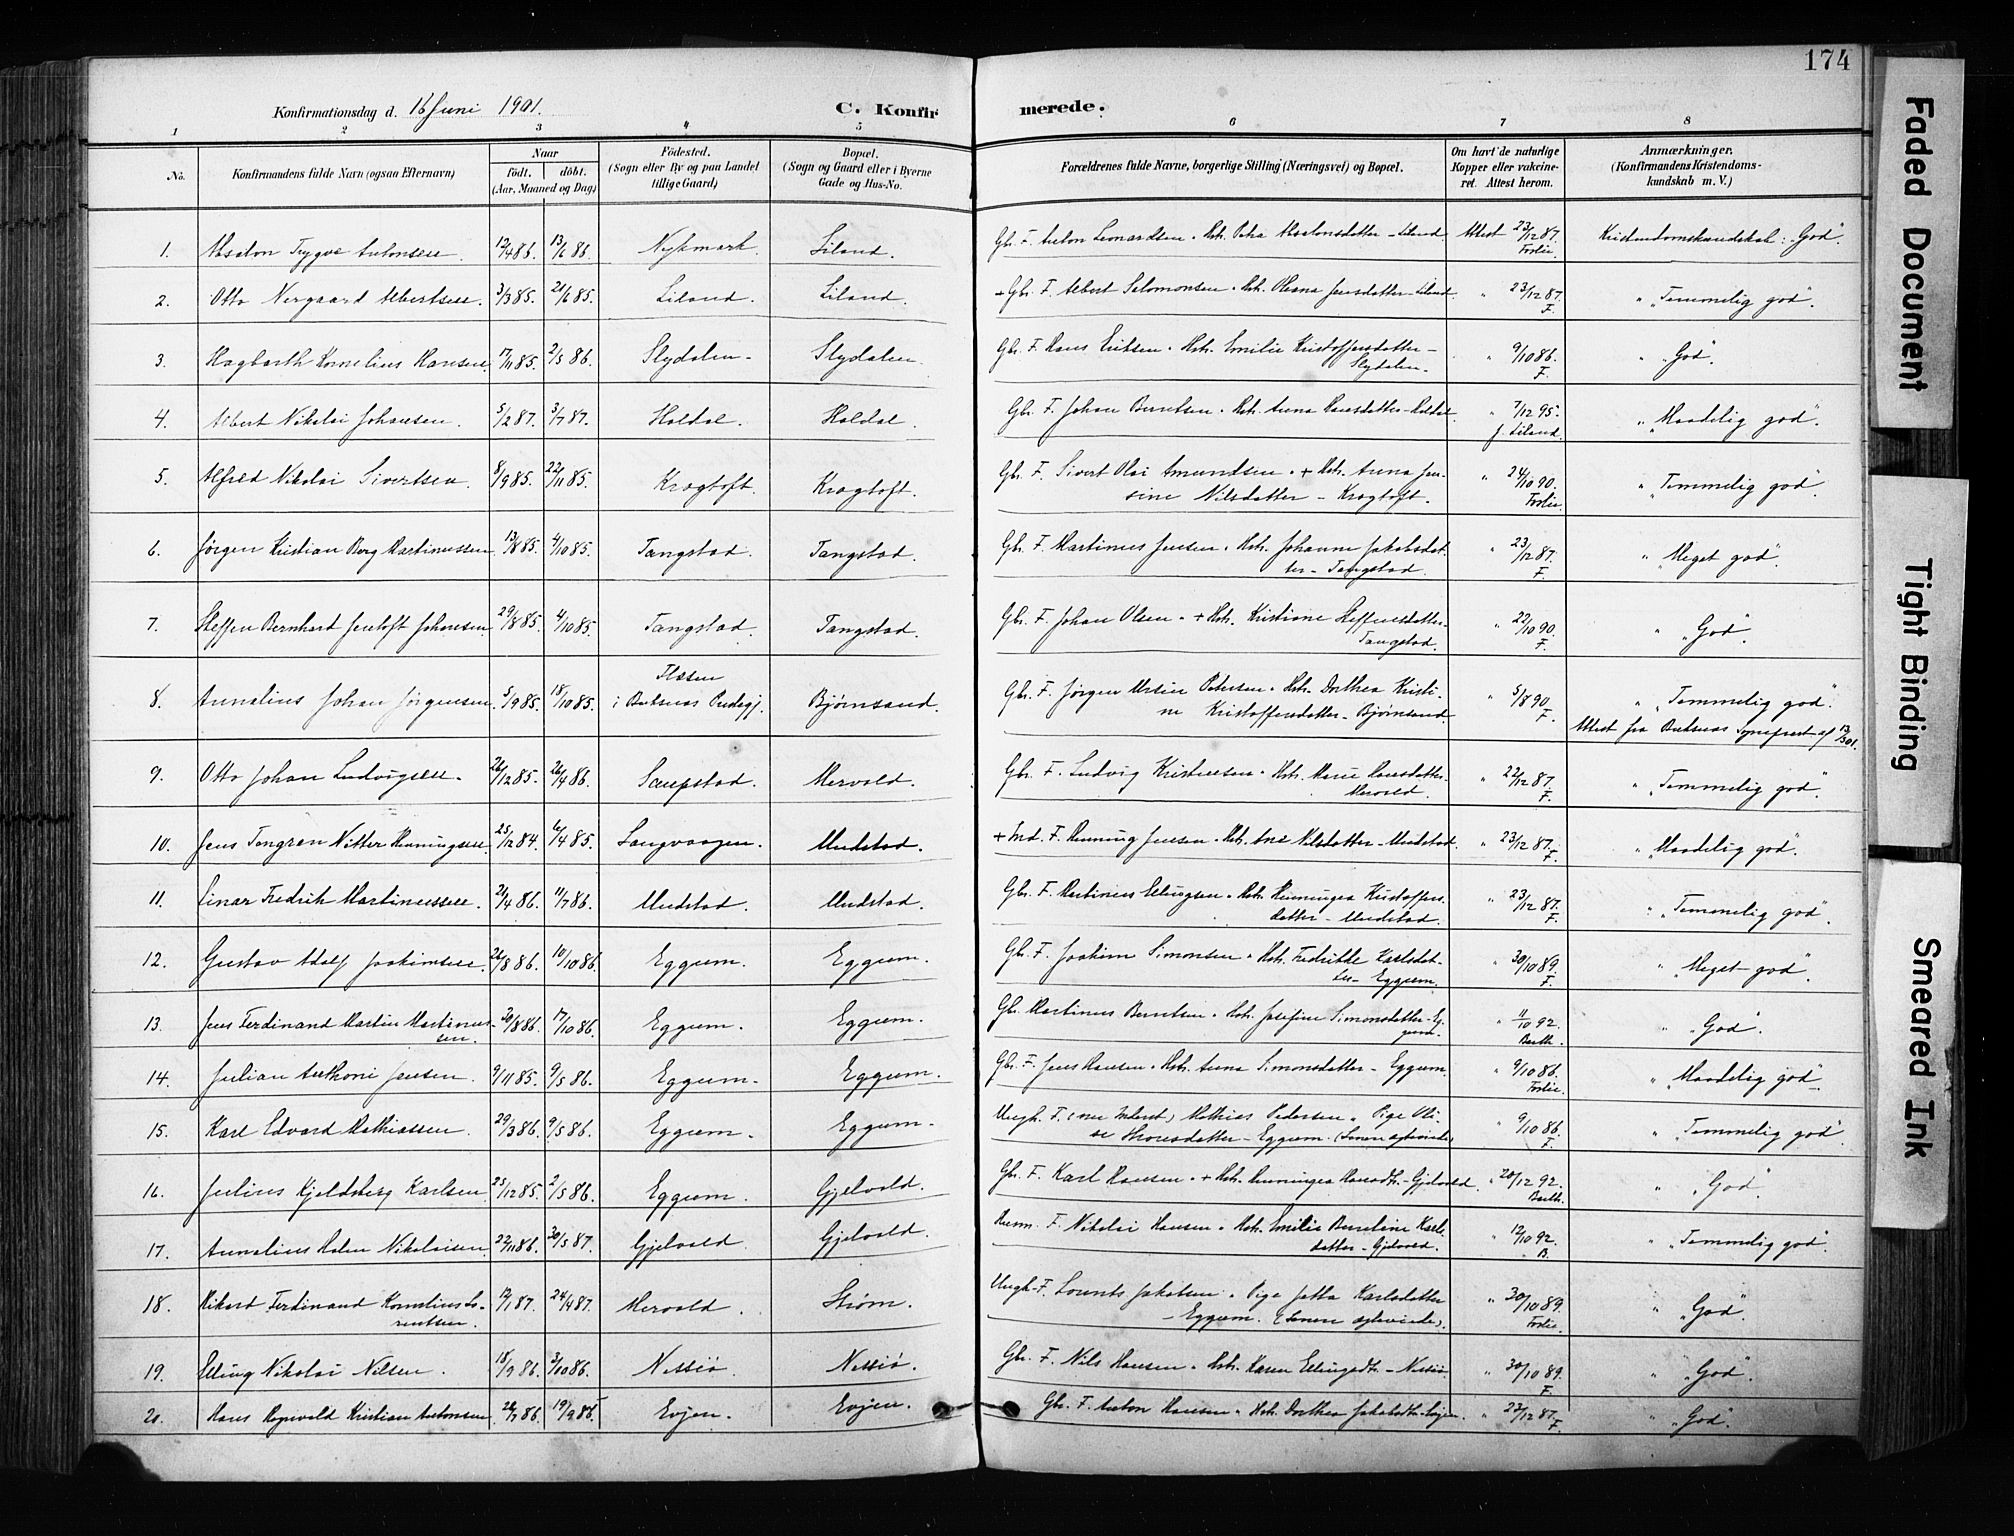 174
Konfirmationsdag d. 16 Juni 1901. C. Konfirmerede.
1 2 3 4 5 6 7 8
No. Konfirmandens fulde Navn (ogsaa Efternavn) Naar født. døbt. (Aar, Maaned og Dag) Fødested. (Sogn eller By og paa Landet tillige Gaard) Bopæl. (Sogn og Gaard eller i Byerne Gade og Hus-No. Forældrenes fulde Navne, borgerlige Stilling (Næringsvei) og Bopæl. Om havt de naturlige Kopper eller vakcineret. Attest herom. Anmærkninger. (Konfirmandens Kristendomskundskab m. V.)
1. Absalon Trygve Antonsen. 12/4 86. 13/6 86. Nykmark. Liland. Gbr. F. Anton Leonardsen. Hstr. Petra Absalonsdatter - Liland. Attest 23/12 87. Foslie. Kristendomskundskab: "God".
2. Otto Nergaard Albertsen. 3/3 85. 21/6 85. Liland. Liland. + Gbr. F. Albert Salomonsen. Hstr. Oleana Jensdatter - Liland. " 23/12 87. F. " "Temmelig god".
3. Hagbarth Kornelius Hansen. 17/11 85. 2/5 86. Slydalen. Slydalen. Gbr. F. Hans Eriksen. Hstr. Emilie Kristoffersdatter -
Slydalen. " 9/10 86. F. " "God".
4. Albert Nikolai Johansen. 5/2 87. 3/7 87. Holdal. Holdal. Gbr. F. Johan Berntsen. Hstr. Anna Hansdatter - Holdal. " 7/12 95. J. Liland. " "Maadelig god".
5. Alfred Nikolai Sivertsen. 8/9 85. 22/11 85. Kragtoft. Kragtoft. Gbr. F. Sivert Olai Amundsen. + Hstr. Anna Jen-
sine Nilsdatter - Kragtoft. " 24/10 90. Foslie. " "Temmelig god".
6. Jørgen Kristian Berg Martinussen 13/8 85. 4/10 85. Tangstad. Tangstad. Gbr. F. Martinus Jensen. Hstr. Johanna Jakobsdat-
ter - Tangstad. " 23/12 87. F. " "Meget god".
7. Steffen Bernhard Jentoft Johansen. 29/8 85. 4/10 85. Tangstad. Tangstad. Gbr. F. Johan Olsen. + Hstr. Kristiane Steffensdatter -
Tangstad. " 22/10 90. F. " "God".
8. Annalius Johan Jørgensen. 5/9 85. 18/10 85. i Buksnæs Prestegj. Bjørnsand. Gbr. F. Jørgen Ursin Petersen. Hstr. Dorthea Kristi-
ne Kristoffersdatter - Bjørnsand. " 5/8 90. F. " "Temmelig god".
Attest fra Buksnæs Sogneprest af 13/3 01.
9. Otto Johan Ludvigsen. 26/12 85. 26/4 86. Saupstad. Mervold. Gbr. F. Ludvig Kristensen. Hstr. Marie Hansdatter -
Mervold. " 22/12 87. F. " "Temmelig god".
10. Jens Tengren Nitter Henningsen. 25/12 84. 6/4 85. Langvaagen. Unstad. + Ind. F. Henning Jensen. Hstr. Ane Nilsdatter - Unstad. " 23/12 87. F. " "Maadelig god".
11. Einar Fredrik Martinussen. 21/4 86. 11/7 86. Unstad. Unstad. Gbr. F. Martinus Ellingsen. Hstr. Henningea Kristoffers-
datter - Unstad. " 23/12 87. F. " "Temmelig god".
12. Gustav Adolf Joakimsen. 26/8 86. 10/10 86. Eggum. Eggum. Gbr. F. Joakim Simonsen. Hstr. Fredrikke Karlsdat-
ter - Eggum. " 30/10 89. F. " "Meget god".
13. Jens Ferdinand Martin Martinus-
sen. 20/8 86. 17/10 86. Eggum. Eggum. Gbr. Martinus Berntsen. Hstr. Josefine Simonsdatter - Eg-
gum. " 11/10 92. Barth. " "God".
14. Julian Anthoni Jensen. 9/11 85. 9/5 86. Eggum. Eggum. Gbr. F. Jens Hansen. Hstr. Anna Simonsdatter - Eggum. " 9/10 86. Foslie. " "Maadelig god".
15. Karl Edvard Mathiassen. 29/3 86. 9/5 86. Eggum. Eggum. Ungk. F. Mathias Pedersen. Pige Oli-
datter - Eggum. (Senere ægteviede) " 9/10 86. F. " "Temmelig god".
16. Julius Kjeldsberg Karlsen 25/12 85. 2/5 86. Eggum. Gjelvold. Gbr. F. Karl Hansen. + Hstr. Henningea Hansdtr. - Gjelvold. " 20/12 92. Barth. " "God".
17. Annalius Holm Nikolaisen. 22/11 86. 30/5 87. Gjelvold. Gjelvold. F. Nikolai Hansen. Hstr. Emilie Berntine Karls-
datter - Gjelvold. " 12/10 92. B. " "Temmelig god".
18. Rikard Ferdinand Kornelius Lo-
rentsen. 12/1 87. 24/4 87. Mervold. Strøm. Ungk. F. Lorents Jakobsen. Pige Jetta Karlsdatter
- Eggum. (Senere ægteviede). " 30/10 89. Foslie. " "God".
19. Elling Nikolai Nilsen. 18/9 86. 3/10 86. Nessiø. Nessiø. Gbr. F. Nils Hansen. Hstr. Karen Ellingsdtr. - Nessiø. " 30/10 89. F. " "God".
20. Hans Ragnvald Kristian Antonsen 26/7 86. 19/9 86. Evjen. Evjen. Gbr. F. Anton Hansen. Hstr. Dorthea Jakobsdtr. Evjen. " 23/12 87. F. " "God".
Faded Document
Tight Binding
Smeared Ink